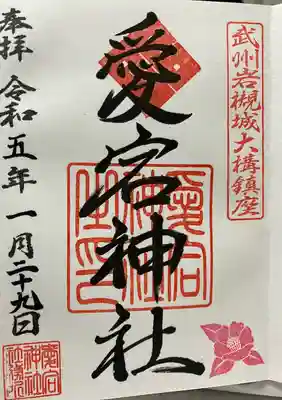 武州岩槻城大構鎮座
愛宕神社
奉拝 令和五年 一月二十九日
愛宕
神社